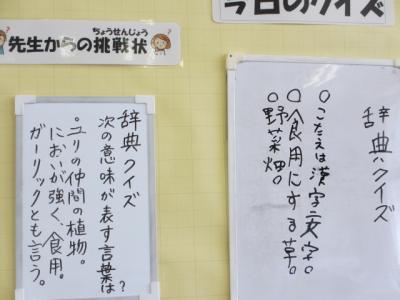 ちょうせんじょう
先生からの挑戦状
今日のクイズ
辞典クイズ
次の意味が表す言葉は?
。ユリの仲間の植物。
においが強く、食用。
ガーリックとも言う。
辞典クイズ
○こたえは漢字二文字。
○食用にする草。
○野菜畑。